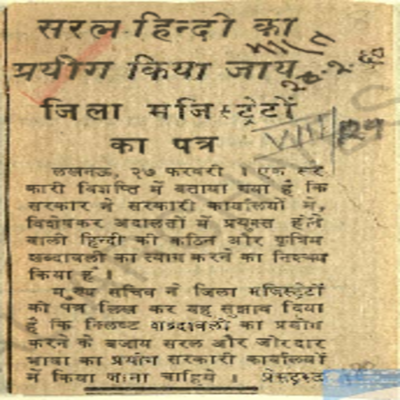 सरल हिन्दी का
प्रयोग किया जाय
जिला मजिस्ट्रेटों
का पत्र
लखनऊ, २७ फरवरी । एक सर
कारी विज्ञप्ति में बताया गया है कि
सरकार ने सरकारी कार्यालयों में,
विशेषकर अदालतों में प्रयुक्त होने
वाली हिन्दी की कठिन और कृत्रिम
शब्दावली का त्याग करने का निश्चय
किया है ।
मुख्य सचिव ने जिला मजिस्ट्रेटों
को पत्र लिख कर यह सुझाव दिया
है कि क्लिष्ट शब्दावली का प्रयोग
करने के बजाय सरल और जोरदार
भाषा का प्रयोग सरकारी कार्यालयों
में किया जाना चाहिये । प्रेसट्रस्ट
VIII/29